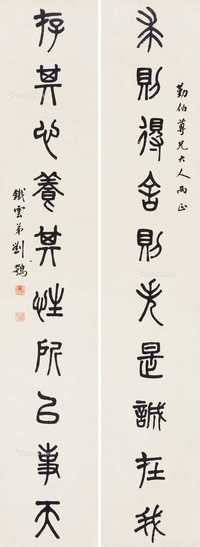 勤伯尊兄大人兩正
求則得舍則失是誠在我
存其心養其性所以事天
鐵雲弟劉鶚